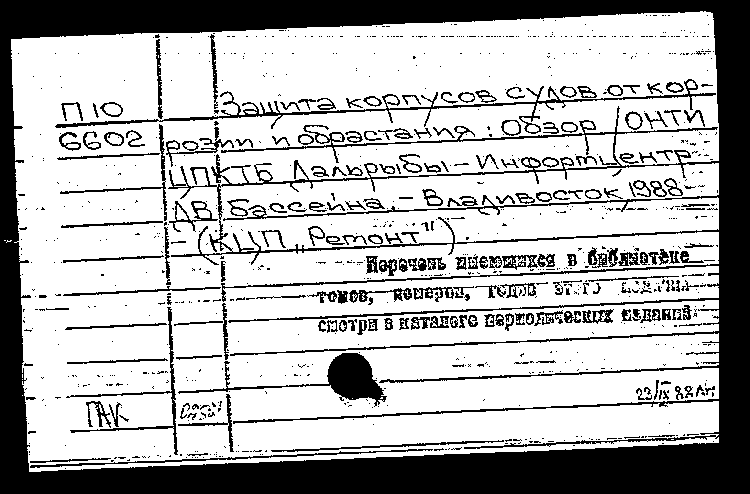 П10 Защита корпусов судов от кор-
6602 розии и обрастания : Обзор / ОНТИ
ЦПКТБ Дальрыбы – Информцентр
ДВ бассейна. – Владивосток, 1988-
– (КЦП „Ремонт").
Перечень имеющихся в библиотеке
томов, номеров, годов этого издания
смотри в каталоге периодических изданий
ПАК 22/IX 88